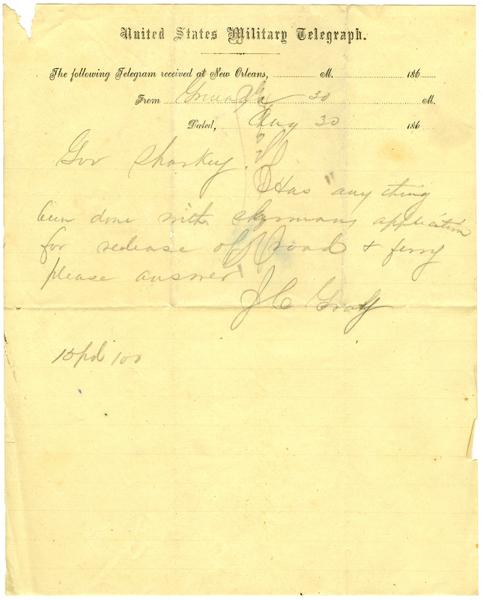 United States Military Telegraph.
The following Telegram received at New Orleans, M. 186
From 30 M.
Dated, Aug 30 186
Gov Sharkey
Has any thing
been done with application
for release of road & ferry
please answer
J C Gray
15 pd 100